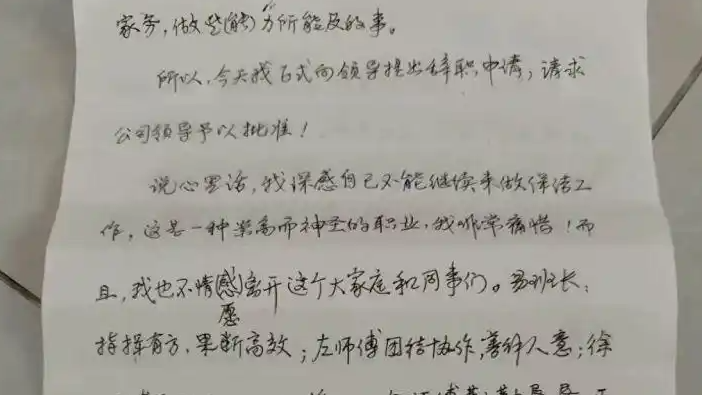 家务，做些(能)力所能及的事。
所以，今天我正式向领导提出辞职申请，请求
公司领导予以批准！
说心里话，我深感自己不能继续来做保洁工
作，这是一种崇高而神圣的职业，我非常痛惜！而
且，我也不情(感)离开这个大家庭和同事们。班长：
愿
指挥有方，果断高效；左师傅团结协作，善解人意；徐